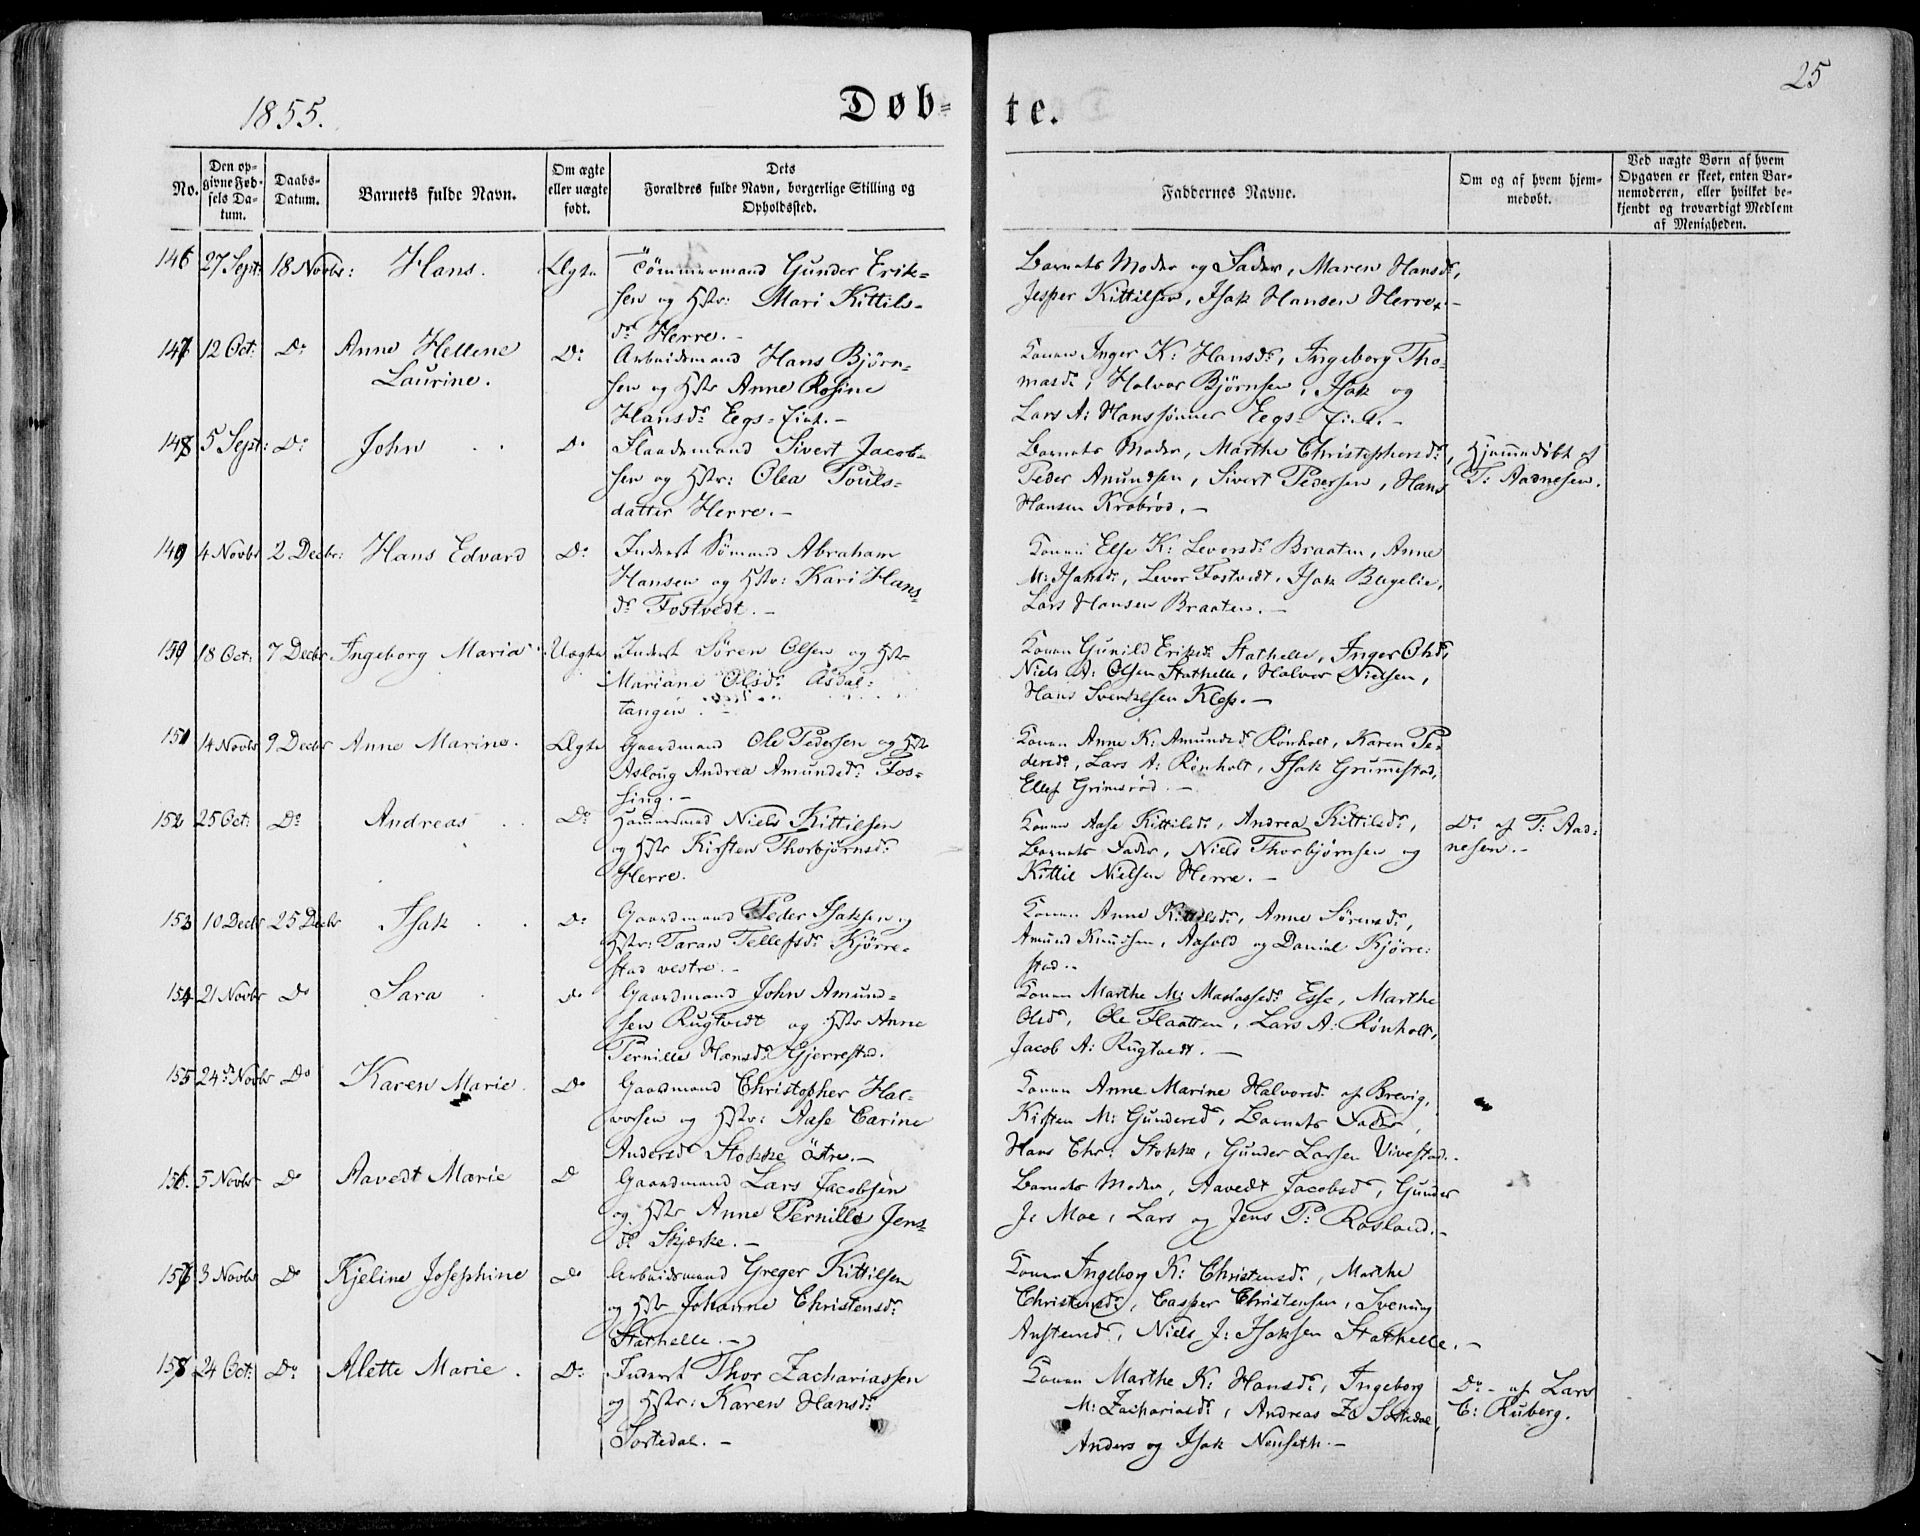 25
1855.
Døb-te.
No.
Den op-
givne Fød-
sels Da-
tum.
Daabs-
Datum.
Barnets fulde Navn.
Om ægte
eller uægte
født.
Dets
Forældres fulde Navn, borgerlige Stilling og
Opholdssted.
Faddernes Navne.
Om og af hvem hjem-
medøbt.
Ved uægte Børn af hvem
Opgaven er skeet, enten Bar-
nemoderen, eller hvilket be-
kjendt og troværdigt Medlem
af Menigheden.
146 27 Sept: 18 Novbr: Hans. Ægte Tømmermand Gunder Erik-
sen og Hstr: Mari Kittils-
dr Herre.-
Barnets Moder og Fader, Maren Hansdr,
Jesper Kittilsen, Isak Hansen Herre.-
147 12 Oct: Do Anne Hellene
Laurine.
Do Arbeidsmand Hans Bjørn-
sen og Hstr Anne Rosine
Hansdr Eegs-Eiet.-
Konen Inger K: Hansdr, Ingeborg Tho-
masdr, Halvor Bjørnsen, Isak og
Lars A: Hanssønner Eegs-Eiet.-
148 5 Sept: Do John Do Flaademand Sivert Jacob-
sen og Hstr: Olea Pouls-
datter Herre.-
Barnets Moder, Marthe Christophersdr,
Peder Amundsen, Sivert Pedersen, Hans
Hansen Krabrød.-
Hjemmedøbt af
T: Aadnesen.
149 4 Novbr 2 Decbr: Hans Edvard Do Inderst Sømand Abraham
Hansen og Hstr: Kari Hans-
dr Tostvedt.-
Konen Else K: Levorsdr Braaten, Anne
M: Isaksdr, Levor Tostvedt, Isak Bagelie,
Lars Hansen Braaten.-
150 18 Oct: 7 Decbr Ingeborg Maria Uægte Inderst Søren Olsen og Hstr
Mariane Olsdr Åsdal-
tangen.
Konen Gunild Eriksdr Stathelle, Inger Olsdr,
Niels A: Olsen Stathelle, Halvor Nielsen,
Hans Svenkesen Klep.-
151 14 Novbr 9 Decbr Anne Marine. Ægte Gaardmand Ole Pedersen og Hstr
Aslaug Andrea Amundsdr Fos-
sing.-
Konen Anne K: Amundsdr Rønholt, Karen Pe-
dersdr, Lars A: Rønholt, Isak Grummestad,
Ellef Grimsrød.-
152 25 Oct: Do Andreas Do Hammersmed Niels Kittilsen
og Hstr Kirsten Thorbjørnsdr
Herre.
Konen Aase Kittilsdr, Andrea Kittilsdr,
Barnets Fader, Niels Thorbjørnsen og
Kittil Nielsen Herre.-
Do af T: Aad-
nesen.-
153 10 Decbr 25 Decbr Isak Do Gaardmand Peder Isaksen og
Hstr: Taran Tellefsdr Kjørre-
stad vestre.-
Konen Anne Kittilsdr, Anne Sørensdr,
Amund Knudsen, Aasold og Daniel Kjørre-
stad.-
154 21 Novbr Do Sara Do Gaardmand John Amund-
sen Rugtvedt og Hstr Anne
Pernille Hansdr Gjerrestad.
Konen Marthe M: Mathiasdr Esse, Marthe
Olsdr, Ole Flaatten, Lars A: Rønholt,
Jacob A: Rugtvedt.-
155 24de Novbr Do Karen Marie. Do Gaardmand Christopher Hal-
vorsen og Hstr: Aase Carine
Andersdr Stokke østre.-
Konen Anne Marine Halvorsdr af Brevig,
Kirsten M: Gundersdr, Barnets Fader,
Hans Chr: Stokke, Gunder Larsen Vivestad.-
156. 5 Novbr Do Aavedt Marie Do Gaardmand Lars Jacobsen
og Hstr Anne Pernille Jens-
dr Skjærke.-
Barnets Moder, Aavedt Jacobsdr, Gunder
J: Moe, Lars og Jens P: Rosland.-
157 3 Novbr Do Kjeline Josephine Do Arbeidsmand Greger Kittilsen
og Hstr Johanne Christensdr
Stathelle.-
Konen Ingeborg K: Christensdr, Marthe
Christensdr, Casper Christensen, Svenung
Austensen, Niels J: Isaksen Stathelle.-
158 24 Oct: Do Alette Marie. Do Inderst Thor Zachariassen
og Hstr: Karen Hansdr
Sortedal.-
Konen Marthe K: Hansdr, Ingeborg
M: Zachariasdr, Andreas Z: Sortedal,
Anders og Isak Nenseth.-
Do- af Lars
C: Ruberg.